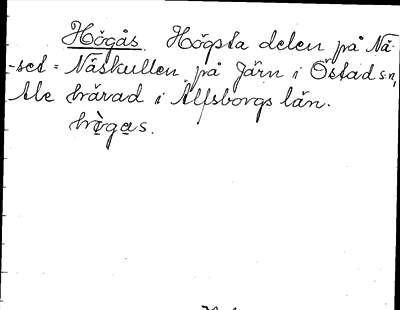 Högås. Högsta delen på Nä-
-set = Näskullen på Järn i Östad sn,
Ale härad i Älfsborgs län.
hògas.